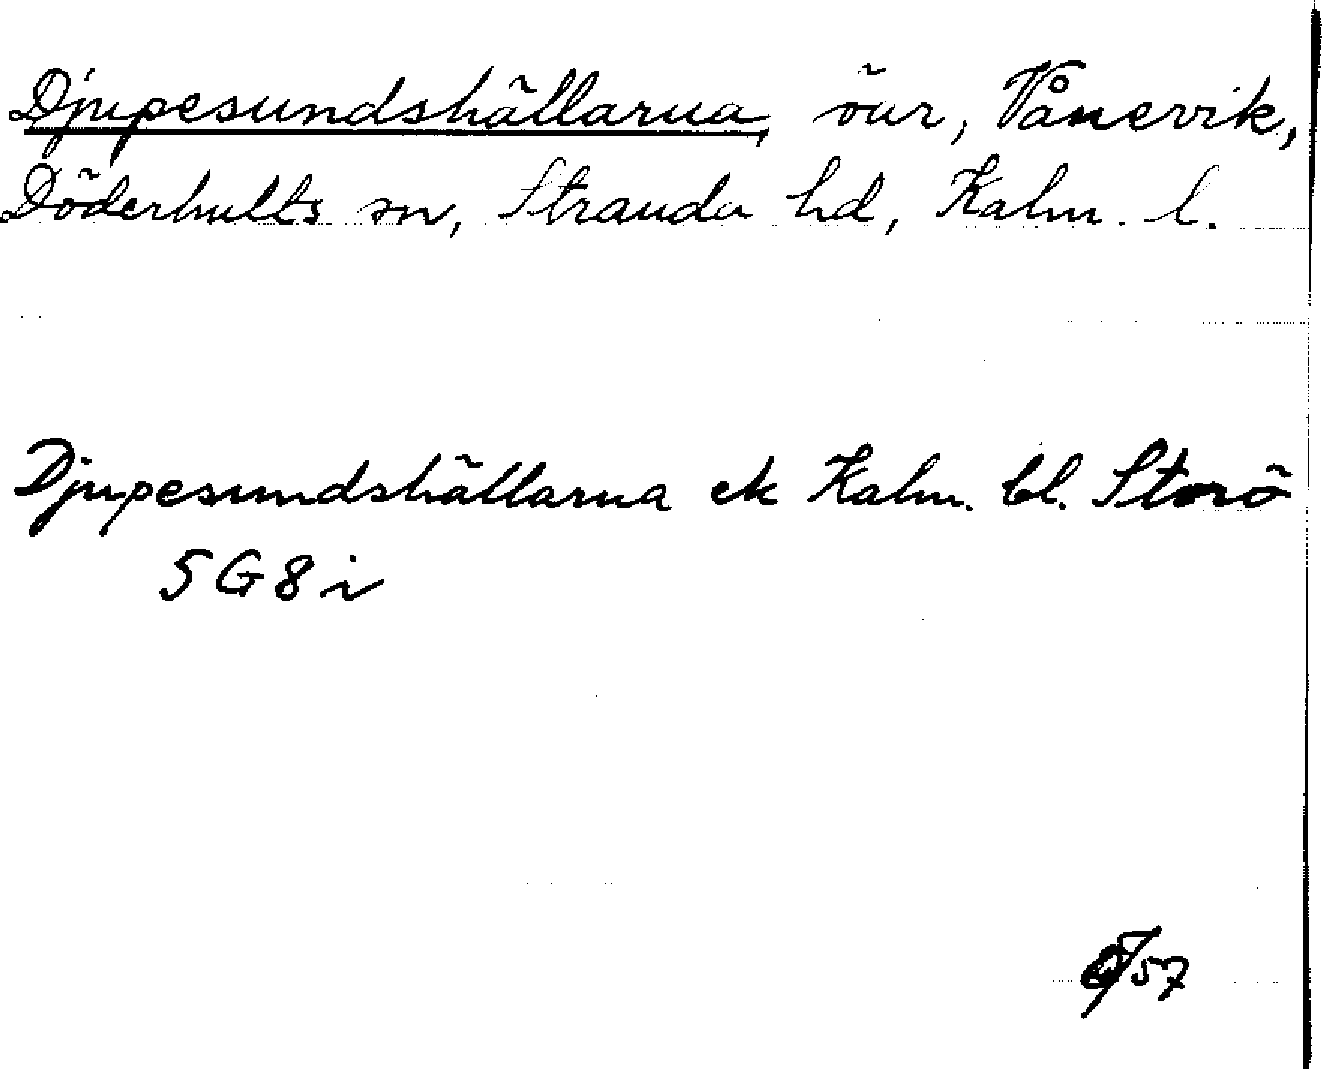 Djupesundshällarna, öar, Vånevik,
Döderhults sn, Stranda hd, Kalm. l.
Djupesundshällarna ek Kalm. bl. Storö
5G8i
57